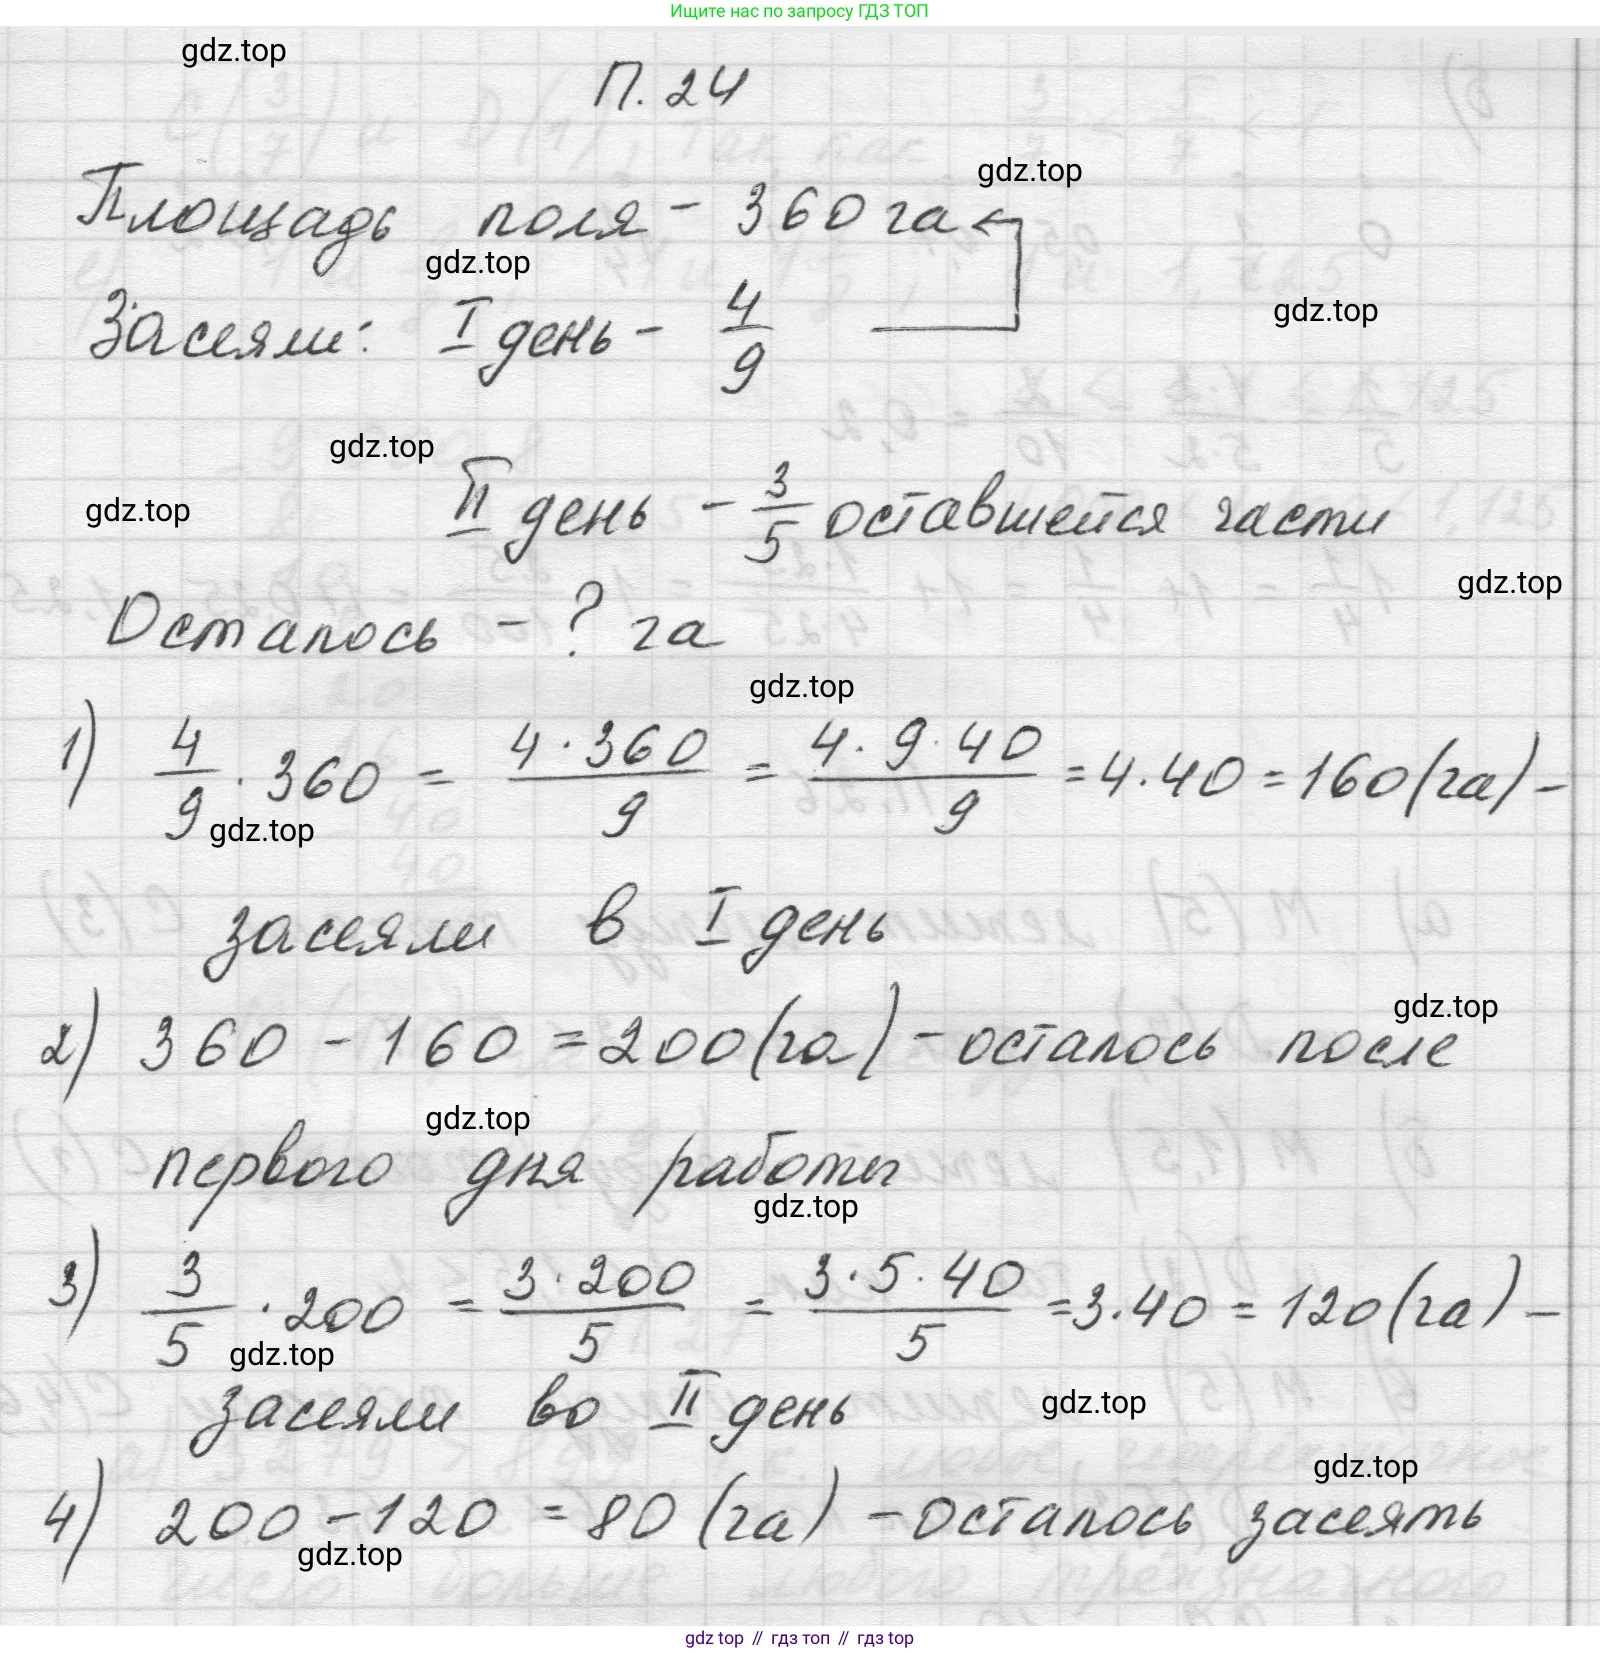 Ищите нас по запросу ГДЗ ТОП
gdz.top
П. 24
gdz.top
Площадь поля - 360 га
gdz.top
gdz.top
Засеяли: I день - 4/9
gdz.top
gdz.top
II день - 3/5 оставшейся части
gdz.top
Осталось - ? га
gdz.top
1) 4/9 · 360 = 4 · 360/9 = 4 · 9 · 40/9 = 4 · 40 = 160 (га) -
gdz.top
засеяли в I день
gdz.top
2) 360 - 160 = 200 (га) - осталось после
gdz.top
первого дня работы
gdz.top
3) 3/5 · 200 = 3 · 200/5 = 3 · 5 · 40/5 = 3 · 40 = 120 (га) -
gdz.top
засеяли во II день
gdz.top
gdz.top
4) 200 - 120 = 80 (га) - осталось засеять
gdz.top
gdz top // гдз топ // gdz top